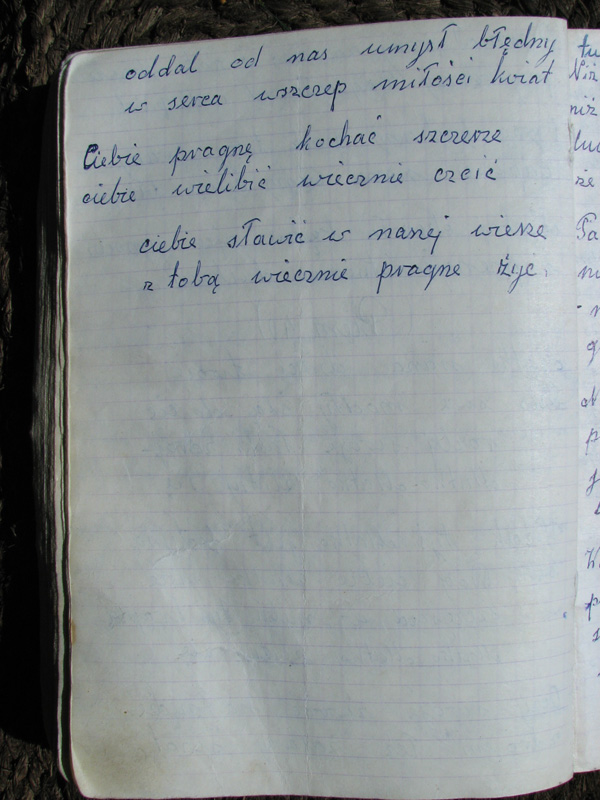 oddal od nas umysł błędny
w serca wszczep miłości kwiat
Ciebie pragnę kochać szczerze
ciebie wielibić wiecznie czcić
ciebie sławić w naszej wierze
z tobą wiecznie pragne żyć.